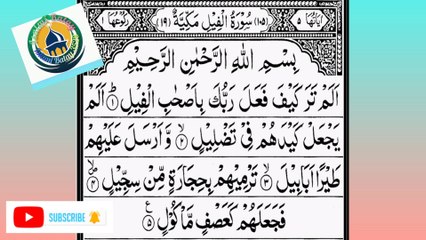 اٰيَاتُهَا ٥ (١٠٥) سُوْرَةُ الْفِيْلِ مَكِّيَّةٌ (١٩) رُكُوْعُهَا ١
بِسْمِ اللّٰهِ الرَّحْمٰنِ الرَّحِيْمِ
اَلَمْ تَرَ كَيْفَ فَعَلَ رَبُّكَ بِاَصْحٰبِ الْفِيْلِ ۝١ اَلَمْ
يَجْعَلْ كَيْدَهُمْ فِيْ تَضْلِيْلٍ ۝٢ وَّاَرْسَلَ عَلَيْهِمْ
طَيْرًا اَبَابِيْلَ ۝٣ تَرْمِيْهِمْ بِحِجَارَةٍ مِّنْ سِجِّيْلٍ ۝٤
فَجَعَلَهُمْ كَعَصْفٍ مَّاْكُوْلٍ ۝٥ ع
SUBSCRIBE